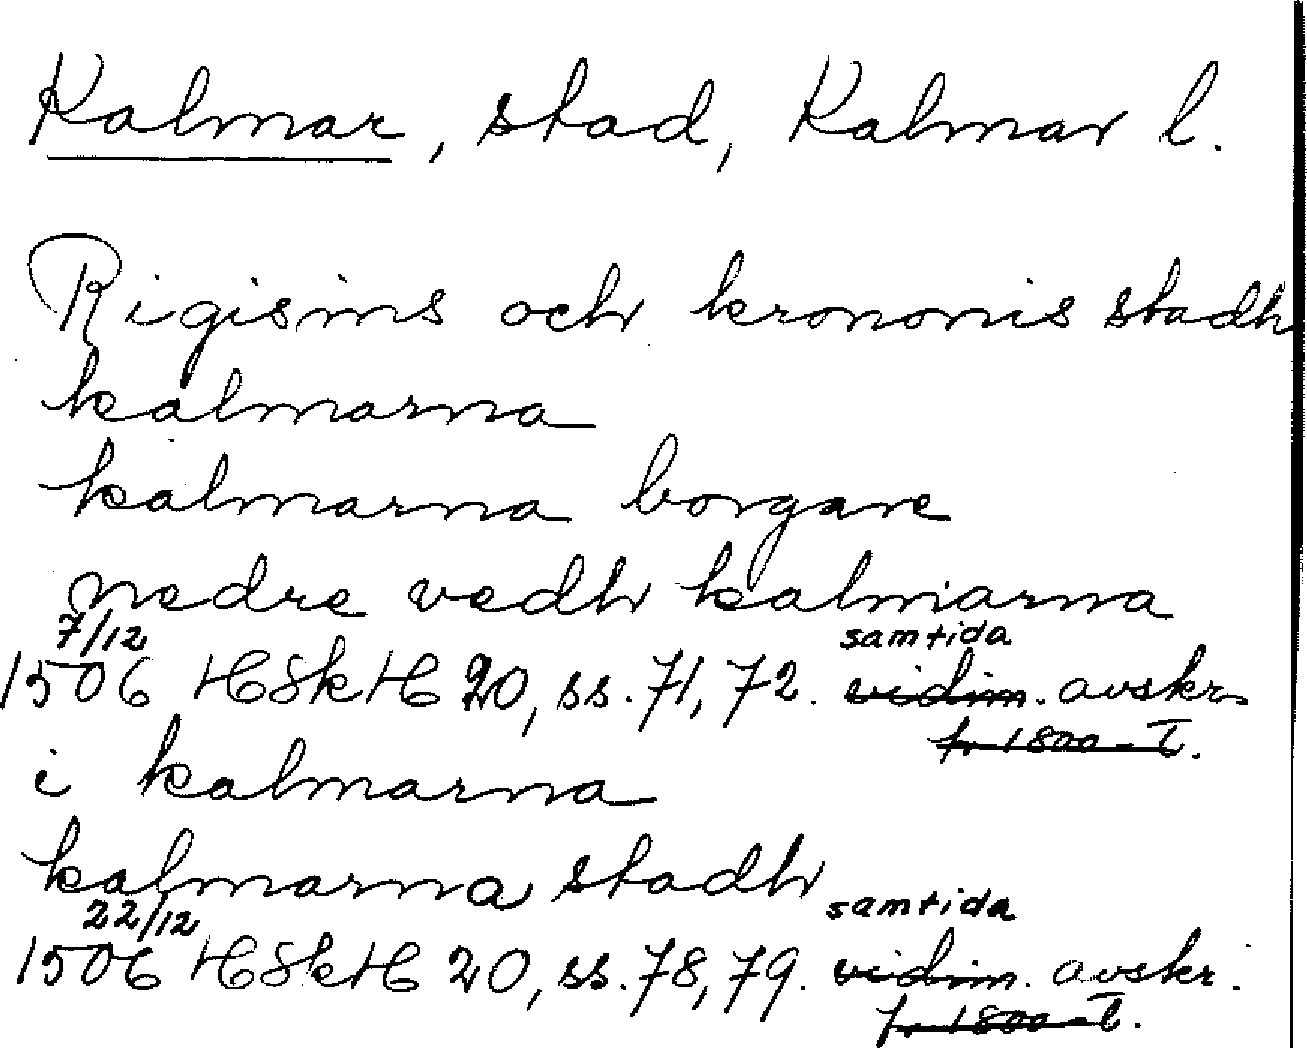 Kalmar, stad, Kalmar l.
Rigisins och krononis stadh
kalmarna
kalmarna borgare
nedre vedh kalmarna
7/12 samtida
1506 HSkH 20, ss. 71, 72. vidim. avskr.
fr 1800-t.
i kalmarna
kalmarna stadh
22/12 samtida
1506 HSkH 20, ss. 78, 79. vidim. avskr.
fr. 1800-t.